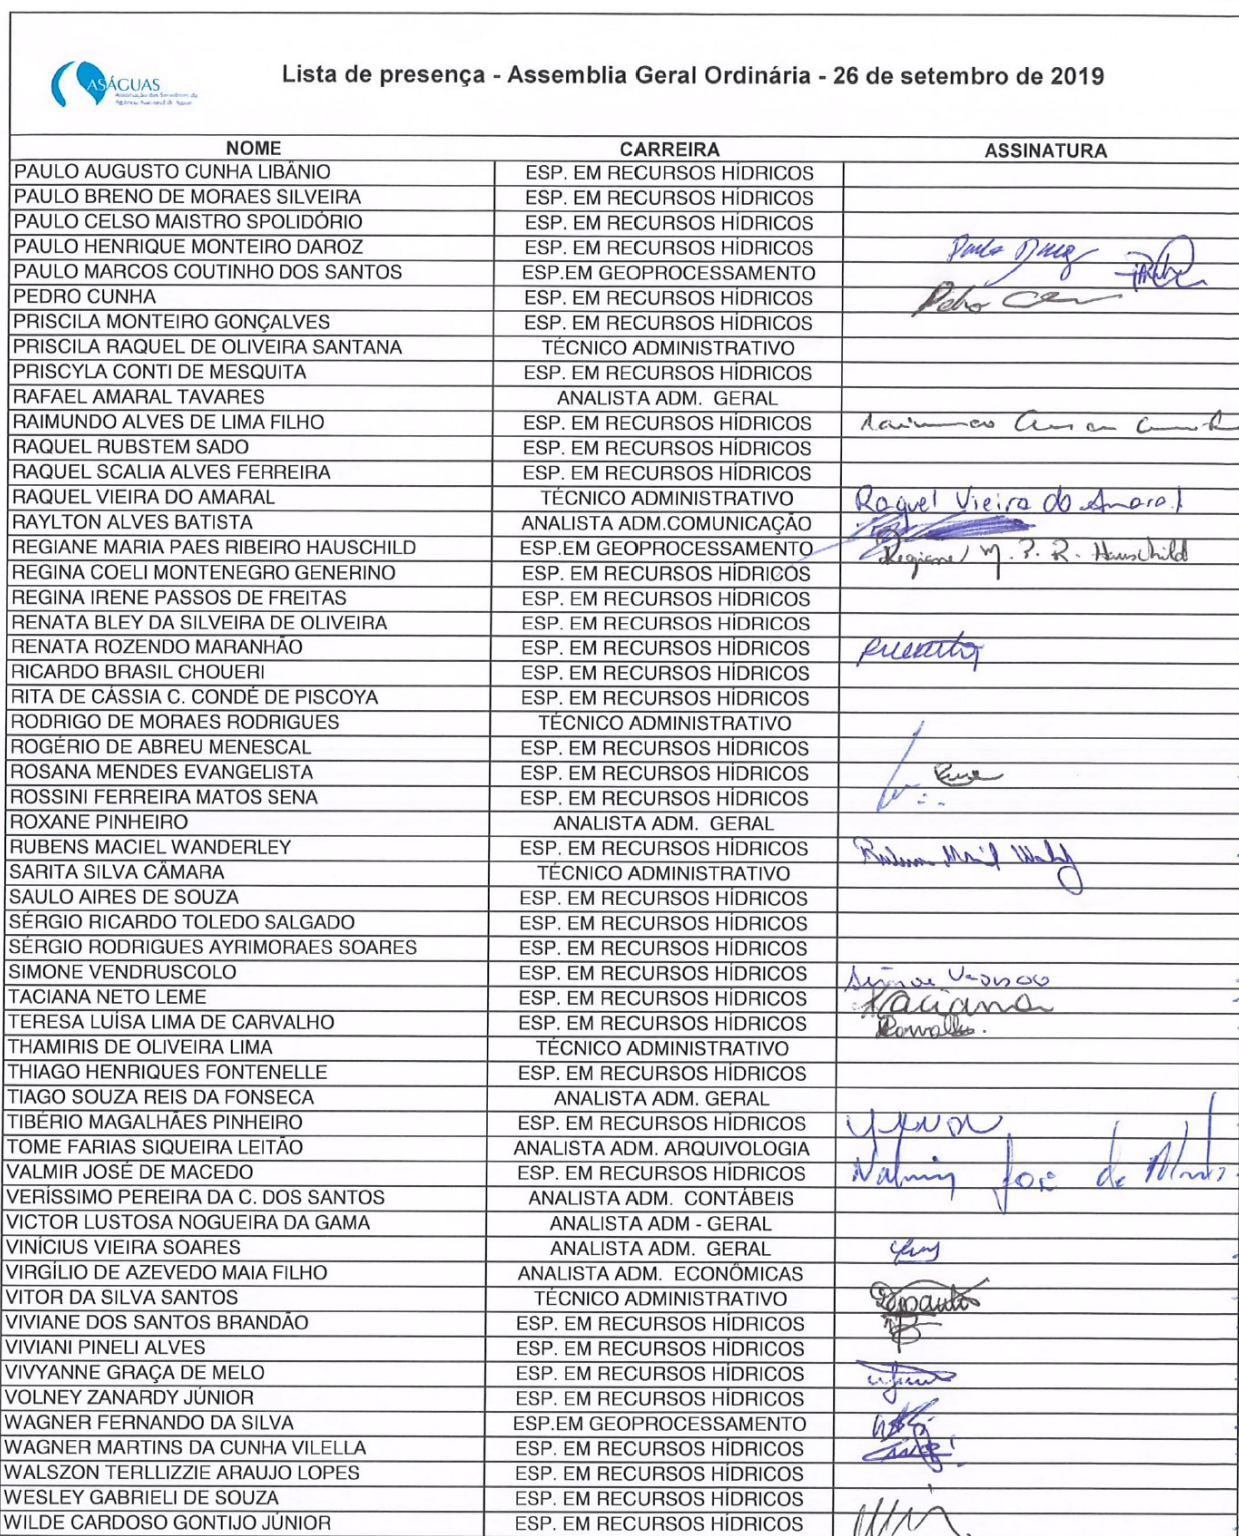 ASÁGUAS
Associação dos Servidores da
Agência Nacional de Águas
Lista de presença - Assemblia Geral Ordinária - 26 de setembro de 2019
NOME CARREIRA ASSINATURA
PAULO AUGUSTO CUNHA LIBÂNIO ESP. EM RECURSOS HÍDRICOS
PAULO BRENO DE MORAES SILVEIRA ESP. EM RECURSOS HÍDRICOS
PAULO CELSO MAISTRO SPOLIDÓRIO ESP. EM RECURSOS HÍDRICOS
PAULO HENRIQUE MONTEIRO DAROZ ESP. EM RECURSOS HÍDRICOS
PAULO MARCOS COUTINHO DOS SANTOS ESP.EM GEOPROCESSAMENTO
PEDRO CUNHA ESP. EM RECURSOS HÍDRICOS Pedro
PRISCILA MONTEIRO GONÇALVES ESP. EM RECURSOS HÍDRICOS
PRISCILA RAQUEL DE OLIVEIRA SANTANA TÉCNICO ADMINISTRATIVO
PRISCYLA CONTI DE MESQUITA ESP. EM RECURSOS HÍDRICOS
RAFAEL AMARAL TAVARES ANALISTA ADM. GERAL
RAIMUNDO ALVES DE LIMA FILHO ESP. EM RECURSOS HÍDRICOS
RAQUEL RUBSTEM SADO ESP. EM RECURSOS HÍDRICOS
RAQUEL SCALIA ALVES FERREIRA ESP. EM RECURSOS HÍDRICOS
RAQUEL VIEIRA DO AMARAL TÉCNICO ADMINISTRATIVO Raquel Vieira do Amaral
RAYLTON ALVES BATISTA ANALISTA ADM.COMUNICAÇÃO
REGIANE MARIA PAES RIBEIRO HAUSCHILD ESP.EM GEOPROCESSAMENTO Regiane M. P. R. Hauschild
REGINA COELI MONTENEGRO GENERINO ESP. EM RECURSOS HÍDRICOS
REGINA IRENE PASSOS DE FREITAS ESP. EM RECURSOS HÍDRICOS
RENATA BLEY DA SILVEIRA DE OLIVEIRA ESP. EM RECURSOS HÍDRICOS
RENATA ROZENDO MARANHÃO ESP. EM RECURSOS HÍDRICOS
RICARDO BRASIL CHOUERI ESP. EM RECURSOS HÍDRICOS
RITA DE CÁSSIA C. CONDÉ DE PISCOYA ESP. EM RECURSOS HÍDRICOS
RODRIGO DE MORAES RODRIGUES TÉCNICO ADMINISTRATIVO
ROGÉRIO DE ABREU MENESCAL ESP. EM RECURSOS HÍDRICOS
ROSANA MENDES EVANGELISTA ESP. EM RECURSOS HÍDRICOS
ROSSINI FERREIRA MATOS SENA ESP. EM RECURSOS HÍDRICOS
ROXANE PINHEIRO ANALISTA ADM. GERAL
RUBENS MACIEL WANDERLEY ESP. EM RECURSOS HÍDRICOS
SARITA SILVA CÂMARA TÉCNICO ADMINISTRATIVO
SAULO AIRES DE SOUZA ESP. EM RECURSOS HÍDRICOS
SÉRGIO RICARDO TOLEDO SALGADO ESP. EM RECURSOS HÍDRICOS
SÉRGIO RODRIGUES AYRIMORAES SOARES ESP. EM RECURSOS HÍDRICOS
SIMONE VENDRUSCOLO ESP. EM RECURSOS HÍDRICOS
TACIANA NETO LEME ESP. EM RECURSOS HÍDRICOS Taciana
TERESA LUÍSA LIMA DE CARVALHO ESP. EM RECURSOS HÍDRICOS
THAMIRIS DE OLIVEIRA LIMA TÉCNICO ADMINISTRATIVO
THIAGO HENRIQUES FONTENELLE ESP. EM RECURSOS HÍDRICOS
TIAGO SOUZA REIS DA FONSECA ANALISTA ADM. GERAL
TIBÉRIO MAGALHÃES PINHEIRO ESP. EM RECURSOS HÍDRICOS
TOME FARIAS SIQUEIRA LEITÃO ANALISTA ADM. ARQUIVOLOGIA
VALMIR JOSÉ DE MACEDO ESP. EM RECURSOS HÍDRICOS Valmir José de
VERÍSSIMO PEREIRA DA C. DOS SANTOS ANALISTA ADM. CONTÁBEIS
VICTOR LUSTOSA NOGUEIRA DA GAMA ANALISTA ADM - GERAL
VINÍCIUS VIEIRA SOARES ANALISTA ADM. GERAL
VIRGÍLIO DE AZEVEDO MAIA FILHO ANALISTA ADM. ECONÔMICAS
VITOR DA SILVA SANTOS TÉCNICO ADMINISTRATIVO
VIVIANE DOS SANTOS BRANDÃO ESP. EM RECURSOS HÍDRICOS
VIVIANI PINELI ALVES ESP. EM RECURSOS HÍDRICOS
VIVYANNE GRAÇA DE MELO ESP. EM RECURSOS HÍDRICOS
VOLNEY ZANARDY JÚNIOR ESP. EM RECURSOS HÍDRICOS
WAGNER FERNANDO DA SILVA ESP.EM GEOPROCESSAMENTO
WAGNER MARTINS DA CUNHA VILELLA ESP. EM RECURSOS HÍDRICOS
WALSZON TERLLIZZIE ARAUJO LOPES ESP. EM RECURSOS HÍDRICOS
WESLEY GABRIELI DE SOUZA ESP. EM RECURSOS HÍDRICOS
WILDE CARDOSO GONTIJO JÚNIOR ESP. EM RECURSOS HÍDRICOS